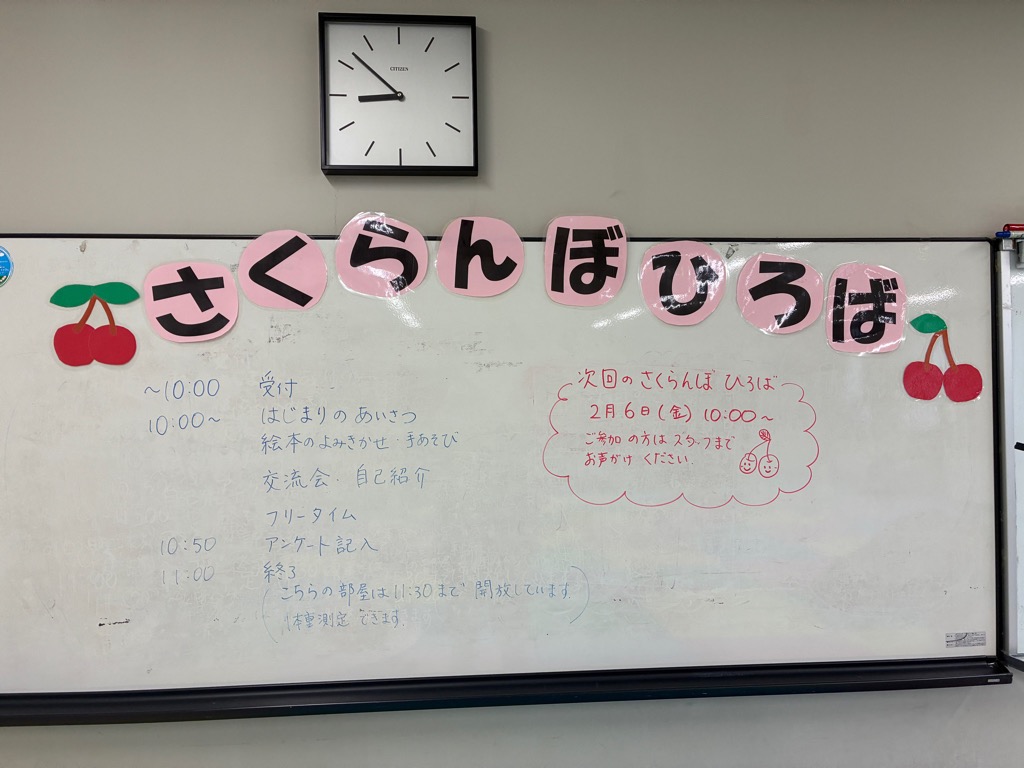 CITIZEN
さくらんぼひろば
～10:00 受付
10:00～ はじまりのあいさつ
絵本のよみきかせ・手あそび
交流会・自己紹介
フリータイム
10:50 アンケート記入
11:00 終了
(こちらの部屋は11:30まで開放しています。
体重測定できます。)
次回のさくらんぼひろば
2月6日(金) 10:00～
ご参加の方はスタッフまで
お声がけください。